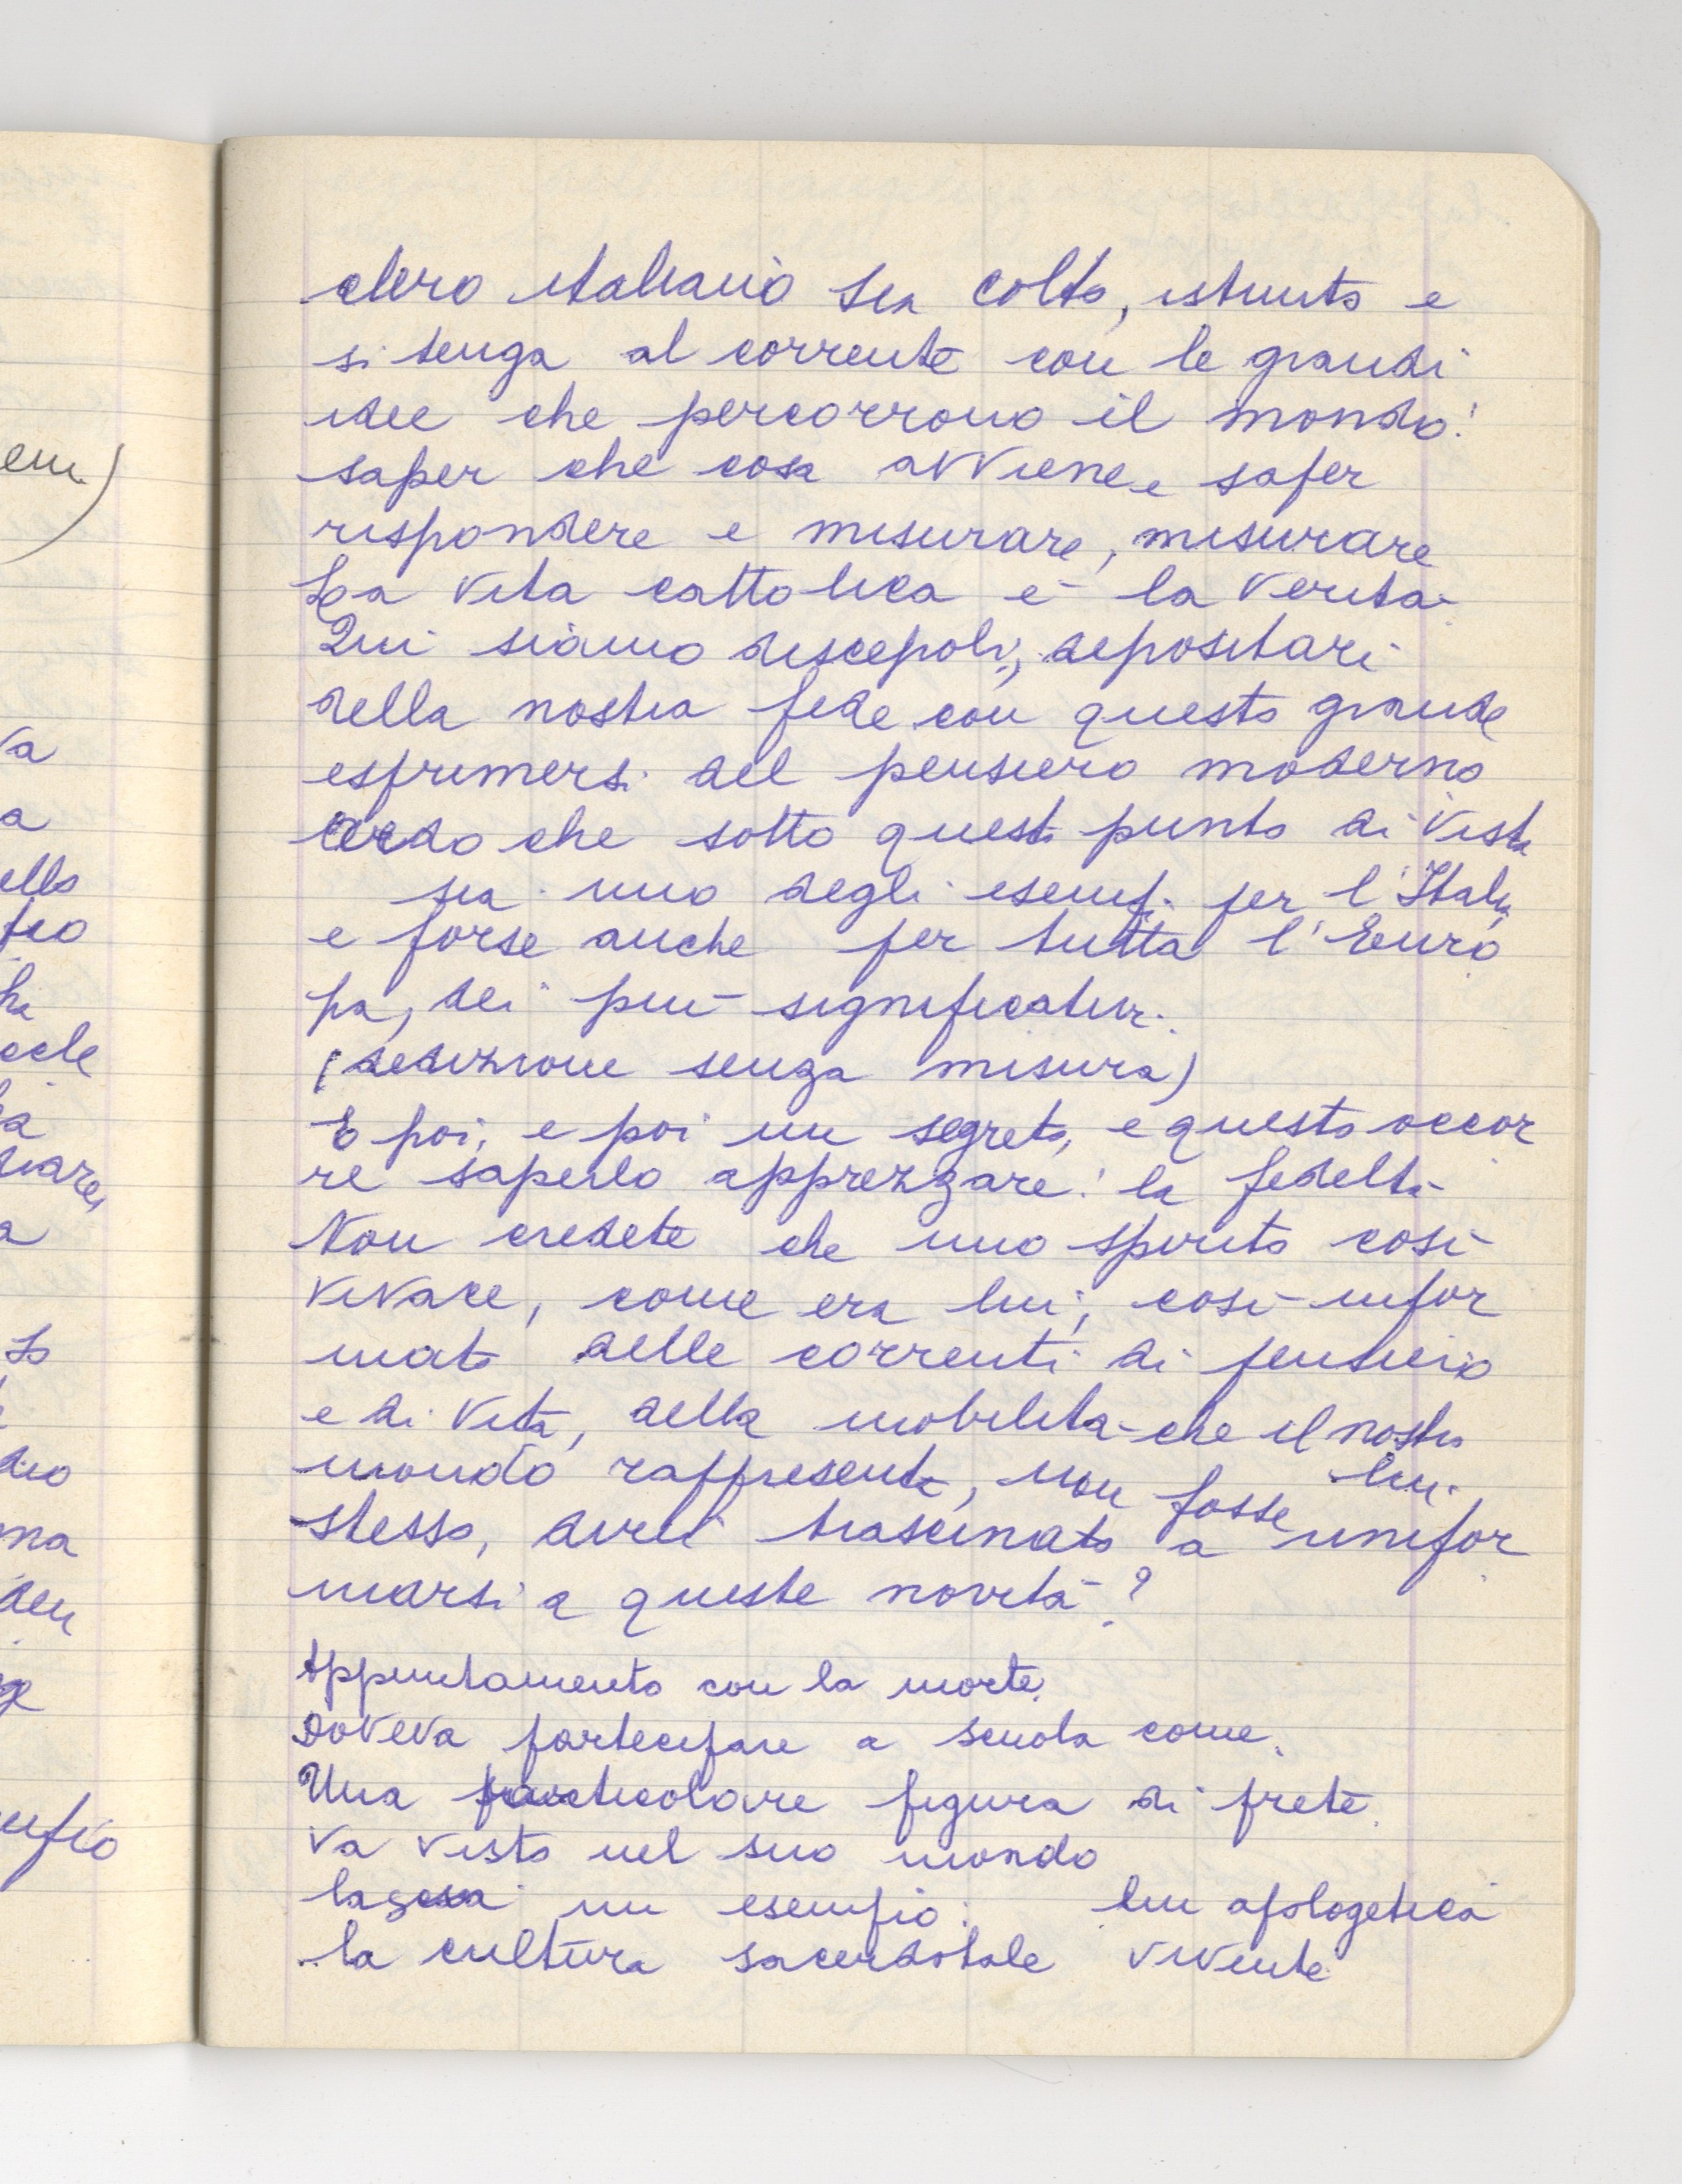 clero italiano sia colto, istruito e
si tenga al corrente con le grandi
idee che percorrono il mondo!
saper che cosa avviene e saper
rispondere e misurare, misurare
La vita cattolica e la verità.
Qui siamo discepoli, depositari
della nostra fede con questo grande
esprimersi del pensiero moderno
credo che sotto questo punto di vista
sia uno degli esempi per l'Italia
e forse anche per tutta l'Euro
pa, dei più significativi.
(dedizione senza misura)
E poi, e poi un segreto, e questo occor
re saperlo apprezzare! la fedeltà
Non credete che uno spirito così
vivace, come era lui, così infor
mato delle correnti di pensiero
e di vita, della mobilità che il nostro
mondo rappresenta, non fosse lui
stesso, direi trascinato a unifor
marsi a queste novità?
Appuntamento con la morte.
Doveva partecipare a scuola come.
Una particolare figura di prete.
va visto nel suo mondo
lascia un esempio: lui apologetica
la cultura sacerdotale vivente
em)
va
a
ello
a
a
ma